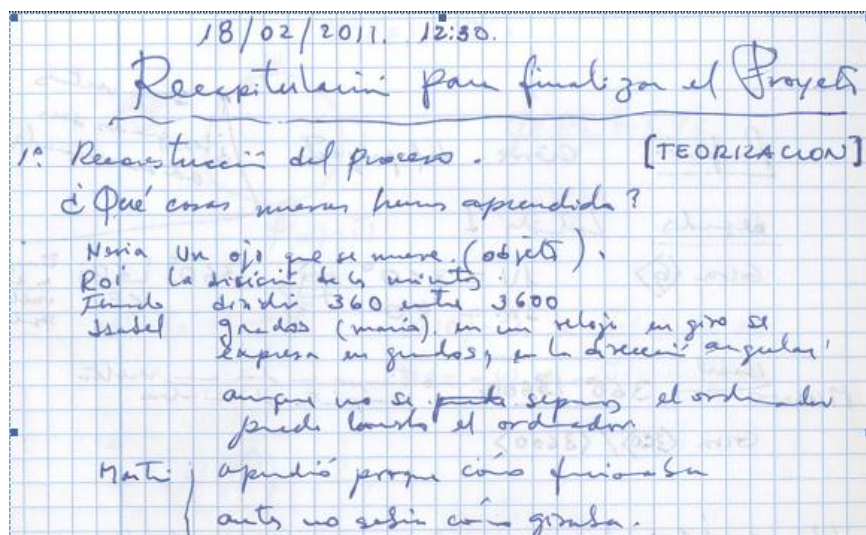 18/02/2011. 12:30.
Recapitulación para finalizar el Proyecto
1º Reconstrucción del proceso. [TEORIZACION]
¿Qué cosas nuevas hemos aprendido?
Neria Un ojo que se mueve. (objeto).
Roi La división de los minutos.
Fernando dividir 360 entre 3600
Isabel grados (maría). en un reloj en giro se
expresa en grados, en la dirección angular
aunque no se sepamos el ordenador
puede el ordenador
Martín aprendió porque cómo funcionaba
antes no sabía cómo giraba.